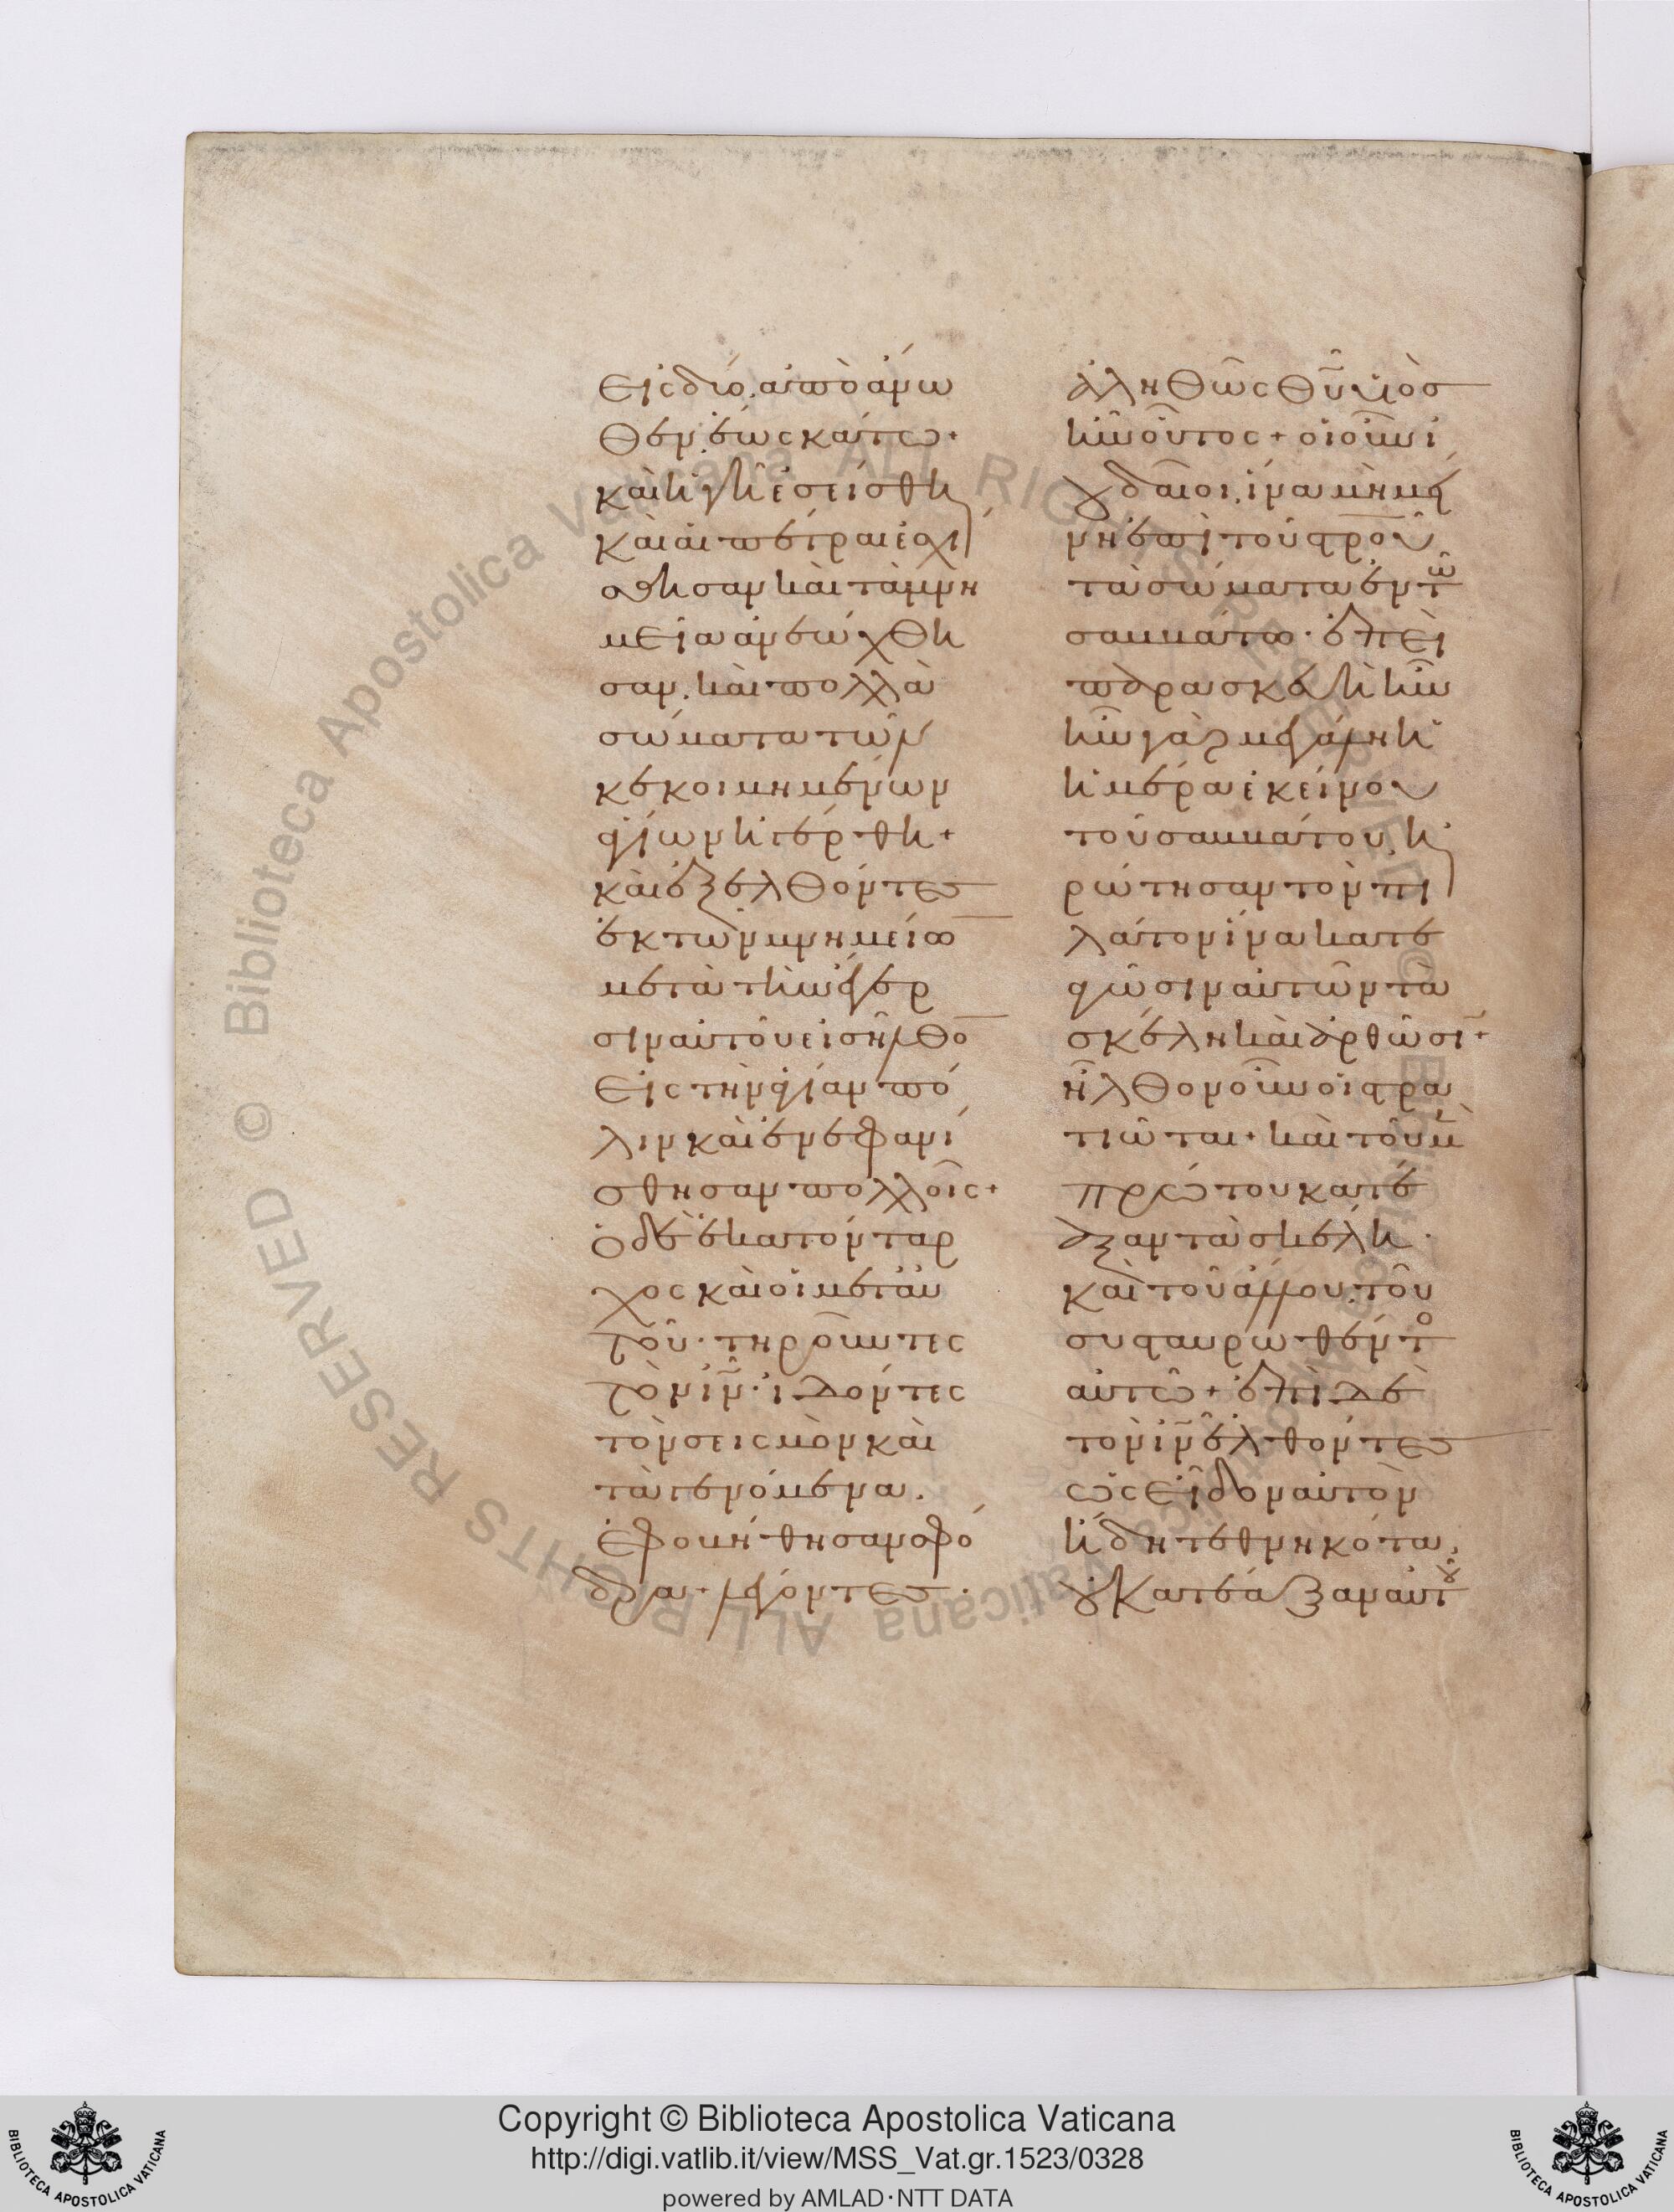 εἰς δύο. ἀπὸ ἄνω
θεν ἕως κάτω +
καὶ ἡ γῆ ἐσείσθη
καὶ αἱ πέτραι ἐσχί
σθησαν καὶ τὰ μνη
μεῖα ἀνεώχθη
σαν. καὶ πολλὰ
σώματα τῶν
κεκοιμημένων
ἁγίων ἠγέρθη +
καὶ ἐξελθόντες
ἐκ τῶν μνημείω̅
μετὰ τὴν ἔγερ
σιν αὐτοῦ εἰσῆλθο̅
εἰς τὴν ἁγίαν πό
λιν καὶ ἐνεφανί
σθησαν πολλοῖς +
ὁ δὲ ἑκατόνταρ
χος καὶ οἱ μετ αὐ
τοῦ · τηροῦντες
τὸν ι̅ν̅ · ἰδόντες
τὸν σεισμὸν καὶ
τὰ γενόμενα.
ἐφοβήθησαν σφό
δρα · λέγοντες ·
ἀληθῶς θ̅υ̅ υἱὸς
ἦν οὗτος + οἱ οὖν ἰ
ουδαῖοι. ἵνα μὴ μεί
νη ἐπὶ τοῦ στ̅ρ̅ο̅υ̅
τὰ σώματα ἐν τῶ
σαββάτω · ἐπεὶ
παρασκευὴ ἦν
ἦν γὰρ μεγάλη ἡ
ἡμέρα ἐκείνου
τοῦ σαββάτου. ἠ
ρώτησαν τὸν πι
λάτον ἵνα κατε
αγῶσιν αὐτῶν τὰ
σκέλη καὶ ἀρθῶσι̅ +
ἦλθον οὖν οἱ στρα
τιῶται + καὶ τοῦ μὲ̅
πρώτου κατέ
αξαν τὰ σκέλη ·
καὶ τοῦ ἄλλου. τοῦ
συσταυρωθέντο
αὐτῶ + ἐπὶ δὲ
τὸν ι̅ν̅ ἐλθόντες
ὡς εἶδον αὐτὸν
ἤδη τεθνηκότα,
οὐ κατέαξαν αὐτοῦ
Copyright © Biblioteca Apostolica Vaticana
http://digi.vatlib.it/view/MSS_Vat.gr.1523/0328
powered by AMLAD·NTT DATA